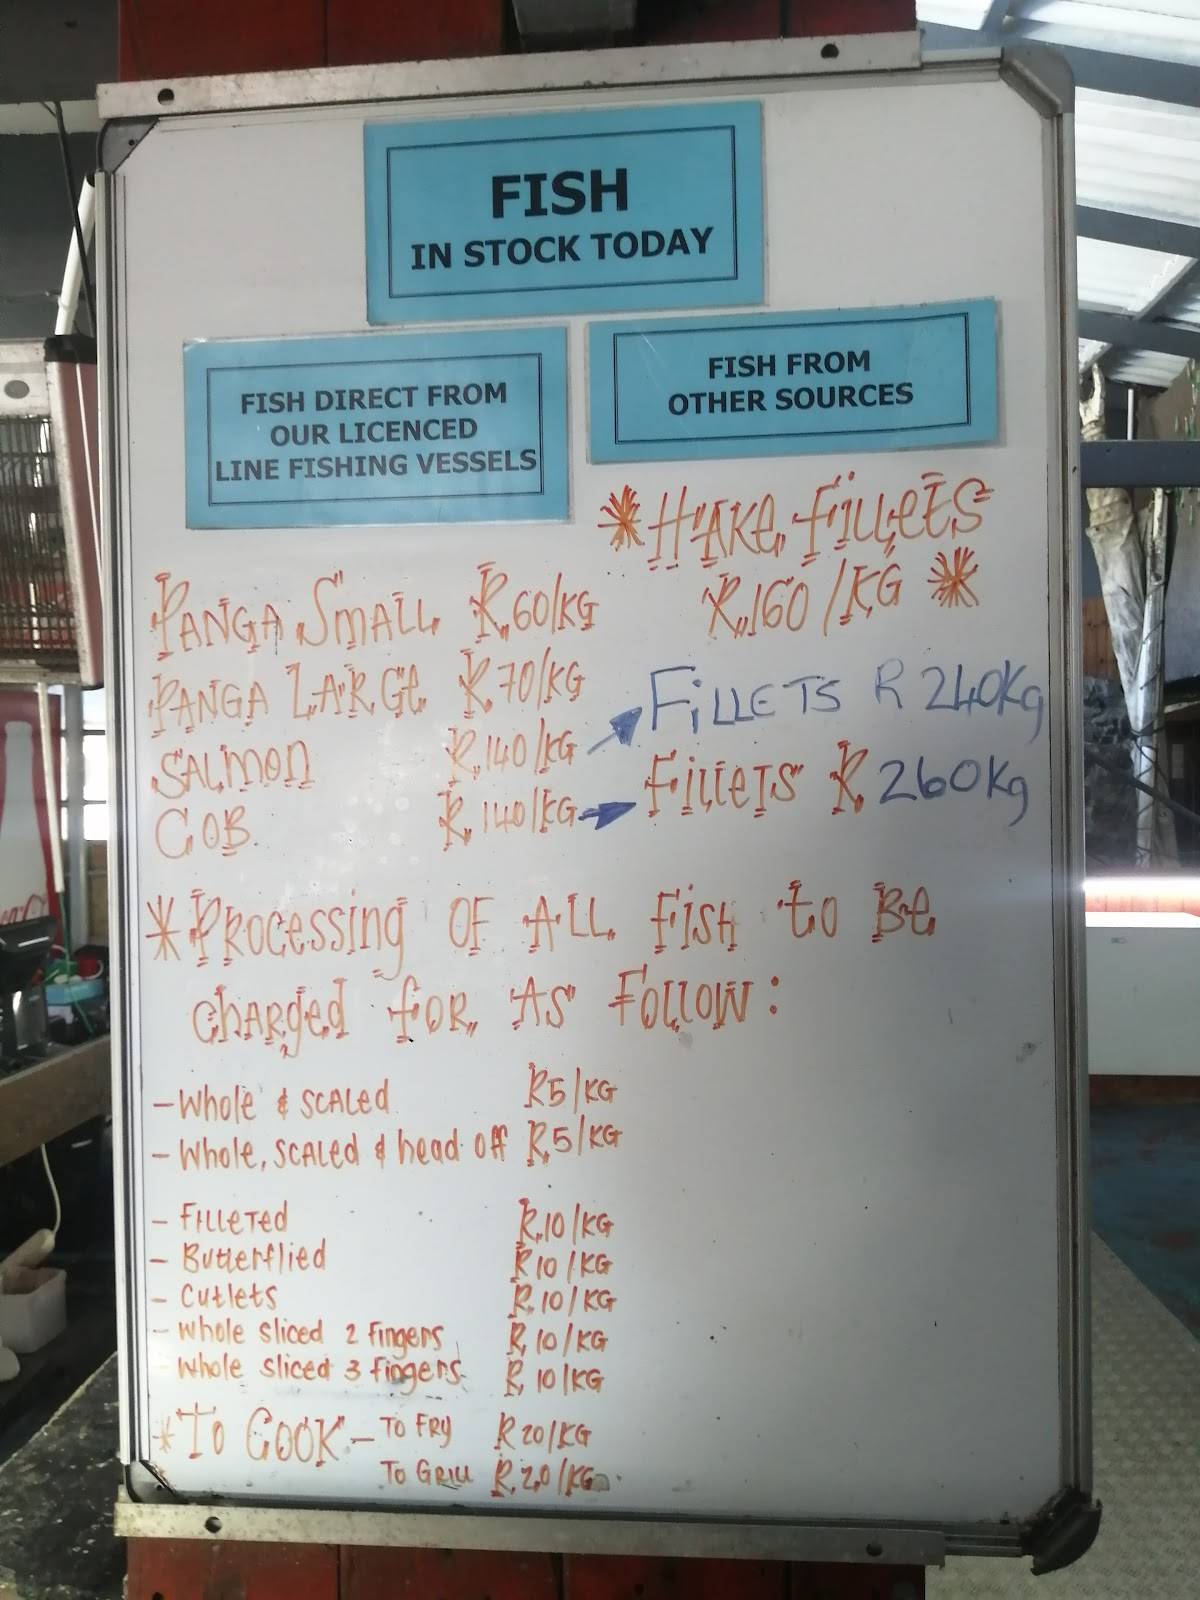 FISH
IN STOCK TODAY
FISH DIRECT FROM
OUR LICENCED
LINE FISHING VESSELS
FISH FROM
OTHER SOURCES
*HAKE FILLETS
R160/KG *
PANGA SMALL R60/KG
PANGA LARGE R70/KG
SALMON R140/KG → FILLETS R240Kg
COB. R140/KG → FILLETS R260Kg
*PROCESSING OF ALL FISH TO BE
CHARGED FOR AS FOLLOW:
- WHOLE & SCALED R5/KG
- WHOLE, SCALED & head off R5/KG
- FILLETED R10/KG
- Butterflied R10/KG
- Cutlets R10/KG
- whole sliced 2 fingers R10/KG
- whole sliced 3 fingers R10/KG
*TO COOK - TO FRY R20/KG
TO GRILL R20/KG